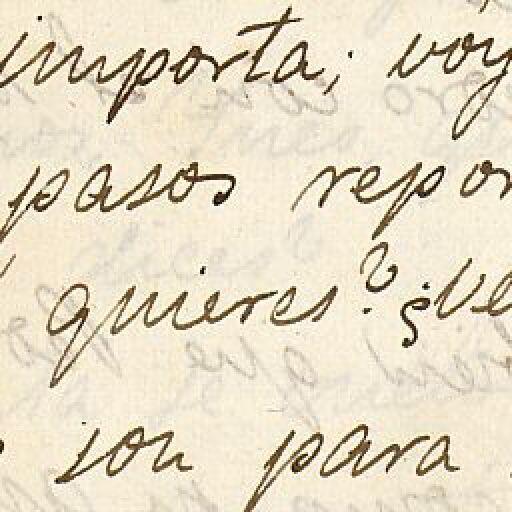 importa; voy
pasos repor
quieres? ¿Ve
son para